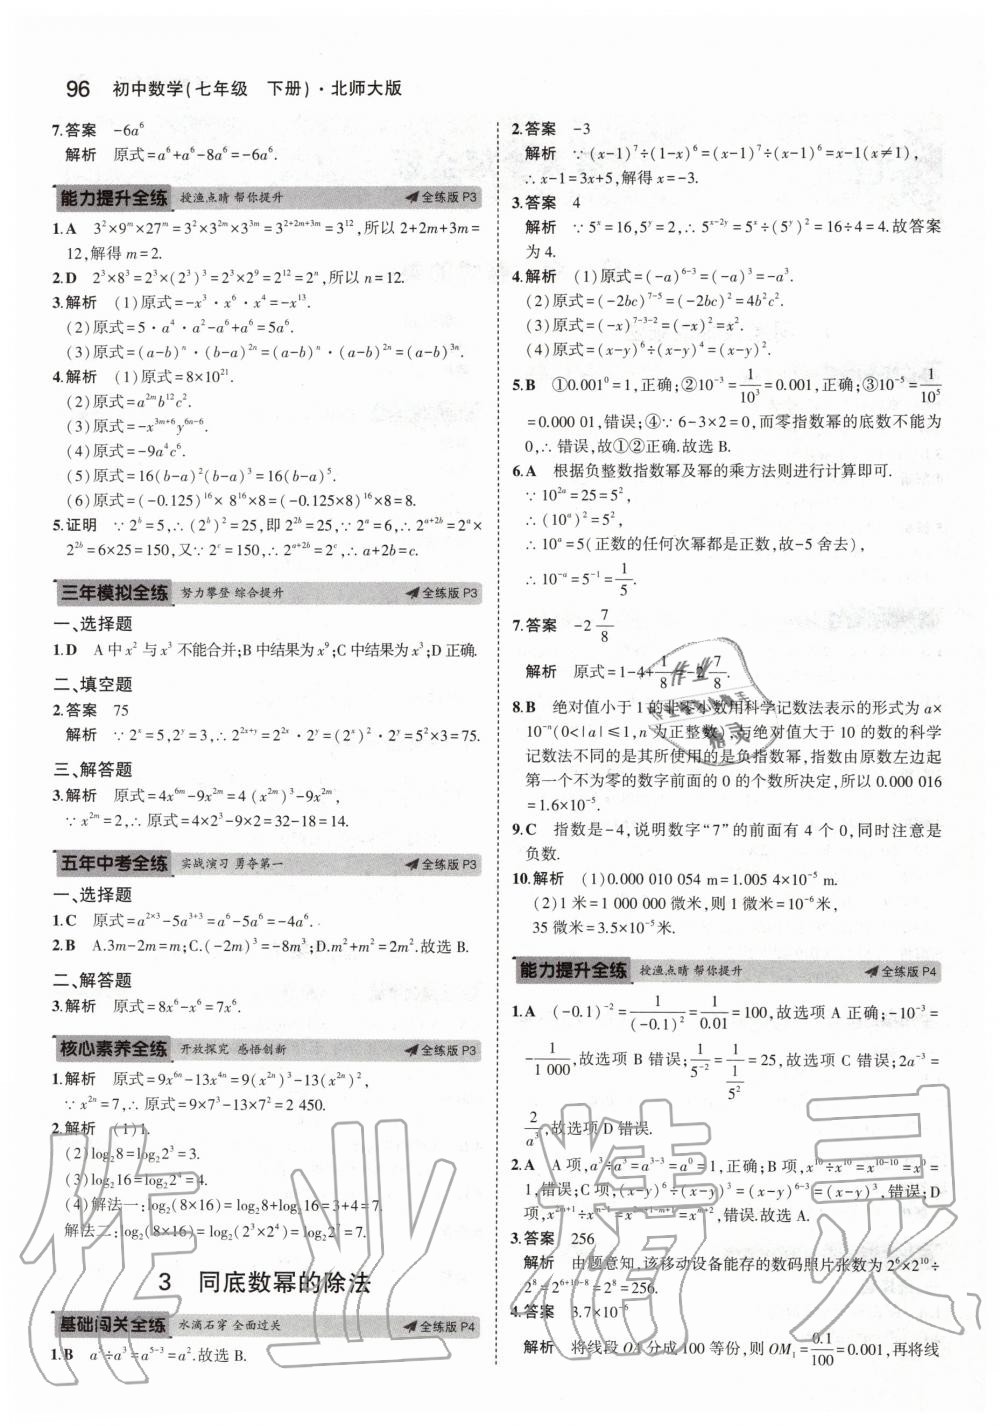 96 初中数学(七年级 下册)·北师大版
7.答案 -6a⁶
解析 原式=a⁶+a⁶-8a⁶=-6a⁶.
能力提升全练 授渔点睛 帮你提升 全练版 P3
1.A 3²×9ᵐ×27ᵐ=3²×3²ᵐ×3³ᵐ=3²⁺²ᵐ⁺³ᵐ=3¹²,所以2+2m+3m=
12,解得m=2.
2.D 2³×8³=2³×(2³)³=2³×2⁹=2¹²=2ⁿ,所以n=12.
3.解析 (1)原式=-x³·x⁶·x⁴=-x¹³.
(2)原式=5·a⁴·a²-a⁶+a⁶=5a⁶.
(3)原式=(a-b)ⁿ·(b-a)²ⁿ=(a-b)ⁿ·(a-b)²ⁿ=(a-b)³ⁿ.
4.解析 (1)原式=8×10²¹.
(2)原式=a²ᵐb¹²c².
(3)原式=-x³ᵐ⁺⁶y⁶ⁿ⁻⁶.
(4)原式=-9a⁴c⁶.
(5)原式=16(b-a)²(b-a)³=16(b-a)⁵.
(6)原式=(-0.125)¹⁶×8¹⁶×8=(-0.125×8)¹⁶×8=8.
5.证明 ∵2ᵇ=5,∴(2ᵇ)²=25,即2²ᵇ=25,∵2ᵃ=6,∴2ᵃ⁺²ᵇ=2ᵃ×
2²ᵇ=6×25=150,又∵2ᶜ=150,∴2ᵃ⁺²ᵇ=2ᶜ,∴a+2b=c.
三年模拟全练 努力攀登 综合提升 全练版 P3
一、选择题
1.D A中x²与x³不能合并;B中结果为x⁹;C中结果为x⁴;D正确.
二、填空题
2.答案 75
解析 ∵2ˣ=5,2ʸ=3,∴2²ˣ⁺ʸ=2²ˣ·2ʸ=(2ˣ)²·2ʸ=5²×3=75.
三、解答题
3.解析 原式=4x⁶ᵐ-9x²ᵐ=4(x²ᵐ)³-9x²ᵐ,
∵x²ᵐ=2,∴原式=4×2³-9×2=32-18=14.
五年中考全练 实战演习 勇夺第一 全练版 P3
一、选择题
1.C 原式=a²ˣ³-5a³⁺³=a⁶-5a⁶=-4a⁶.
2.B A.3m-2m=m;C.(-2m)³=-8m³;D.m²+m²=2m².故选B.
二、解答题
3.解析 原式=8x⁶-x⁶=7x⁶.
核心素养全练 开放探究 感悟创新 全练版 P3
1.解析 原式=9x⁶ⁿ-13x⁴ⁿ=9(x²ⁿ)³-13(x²ⁿ)²,
∵x²ⁿ=7,∴原式=9×7³-13×7²=2 450.
2.解析 (1)1.
(2)log₂8=log₂2³=3.
(3)log₂16=log₂2⁴=4.
(4)解法一:log₂(8×16)=log₂8+log₂16=3+4=7.
解法二:log₂(8×16)=log₂(2³×2⁴)=log₂2⁷=7.
3 同底数幂的除法
基础闯关全练 水滴石穿 全面过关 全练版 P4
1.B a⁵÷a³=a⁵⁻³=a².故选B.
2.答案 -3
解析 ∵(x-1)⁷÷(1-x)⁶=(x-1)⁷÷(x-1)⁶=x-1(x≠1),
∴x-1=3x+5,解得x=-3.
3.答案 4
解析 ∵5ˣ=16,5ʸ=2,∴5ˣ⁻²ʸ=5ˣ÷(5ʸ)²=16÷4=4.故答案
为4.
4.解析 (1)原式=(-a)⁶⁻³=(-a)³=-a³.
(2)原式=(-2bc)⁷⁻⁵=(-2bc)²=4b²c².
(3)原式=(-x)⁷⁻³⁻²=(-x)²=x².
(4)原式=(x-y)⁶÷(x-y)⁴=(x-y)².
5.B ①0.001⁰=1,正确;②10⁻³=1/10³=0.001,正确;③10⁻⁵=1/10⁵
=0.000 01,错误;④∵6-3×2=0,而零指数幂的底数不能为
0,∴错误,故①②正确.故选B.
6.A 根据负整数指数幂及幂的乘方法则进行计算即可.
∵10²ᵃ=25=5²,
∴(10ᵃ)²=5²,
∴10ᵃ=5(正数的任何次幂都是正数,故-5舍去),
∴10⁻ᵃ=5⁻¹=1/5.
7.答案 -2 7/8
解析 原式=1-4+1/8=-2 7/8.
8.B 绝对值小于1的非零小数用科学记数法表示的形式为a×
10⁻ⁿ(0<|a|≤1,n为正整数),与绝对值大于10的数的科学
记数法不同的是其所使用的是负指数幂,指数由原数左边起
第一个不为零的数字前面的0的个数所决定,所以0.000 016
=1.6×10⁻⁵.
9.C 指数是-4,说明数字“7”的前面有4个0,同时注意是
负数.
10.解析 (1)0.000 010 054 m=1.005 4×10⁻⁵ m.
(2)1米=1 000 000微米,则1微米=10⁻⁶米,
35微米=3.5×10⁻⁵米.
能力提升全练 授渔点睛 帮你提升 全练版 P4
1.A (-0.1)⁻²=1/(-0.1)²=1/0.01=100,故选项A正确;-10⁻³=
-1/1 000,故选项B错误;1/5⁻²=1/(1/5²)=25,故选项C错误;2a⁻³=
2/a³,故选项D错误.
2.A A项,a³÷a³=a³⁻³=a⁰=1,正确;B项,x¹⁰÷x¹⁰=x¹⁰⁻¹⁰=x⁰=
1,错误;C项,(x-y)⁶÷(x-y)³=(x-y)⁶⁻³=(x-y)³,错误;D
项,x²ᵐ⁺¹÷xᵐ⁻¹=x²ᵐ⁺¹⁻ᵐ⁺¹=xᵐ⁺²,错误.故选A.
3.答案 256
解析 由题意知,该移动设备能存的数码照片张数为2⁶×2¹⁰÷
2⁸=2⁶⁺¹⁰⁻⁸=2⁸=256.
4.答案 3.7×10⁻⁶
解析 将线段OA分成100等份,则OM₁=0.1/100=0.001,再将线
作业精灵